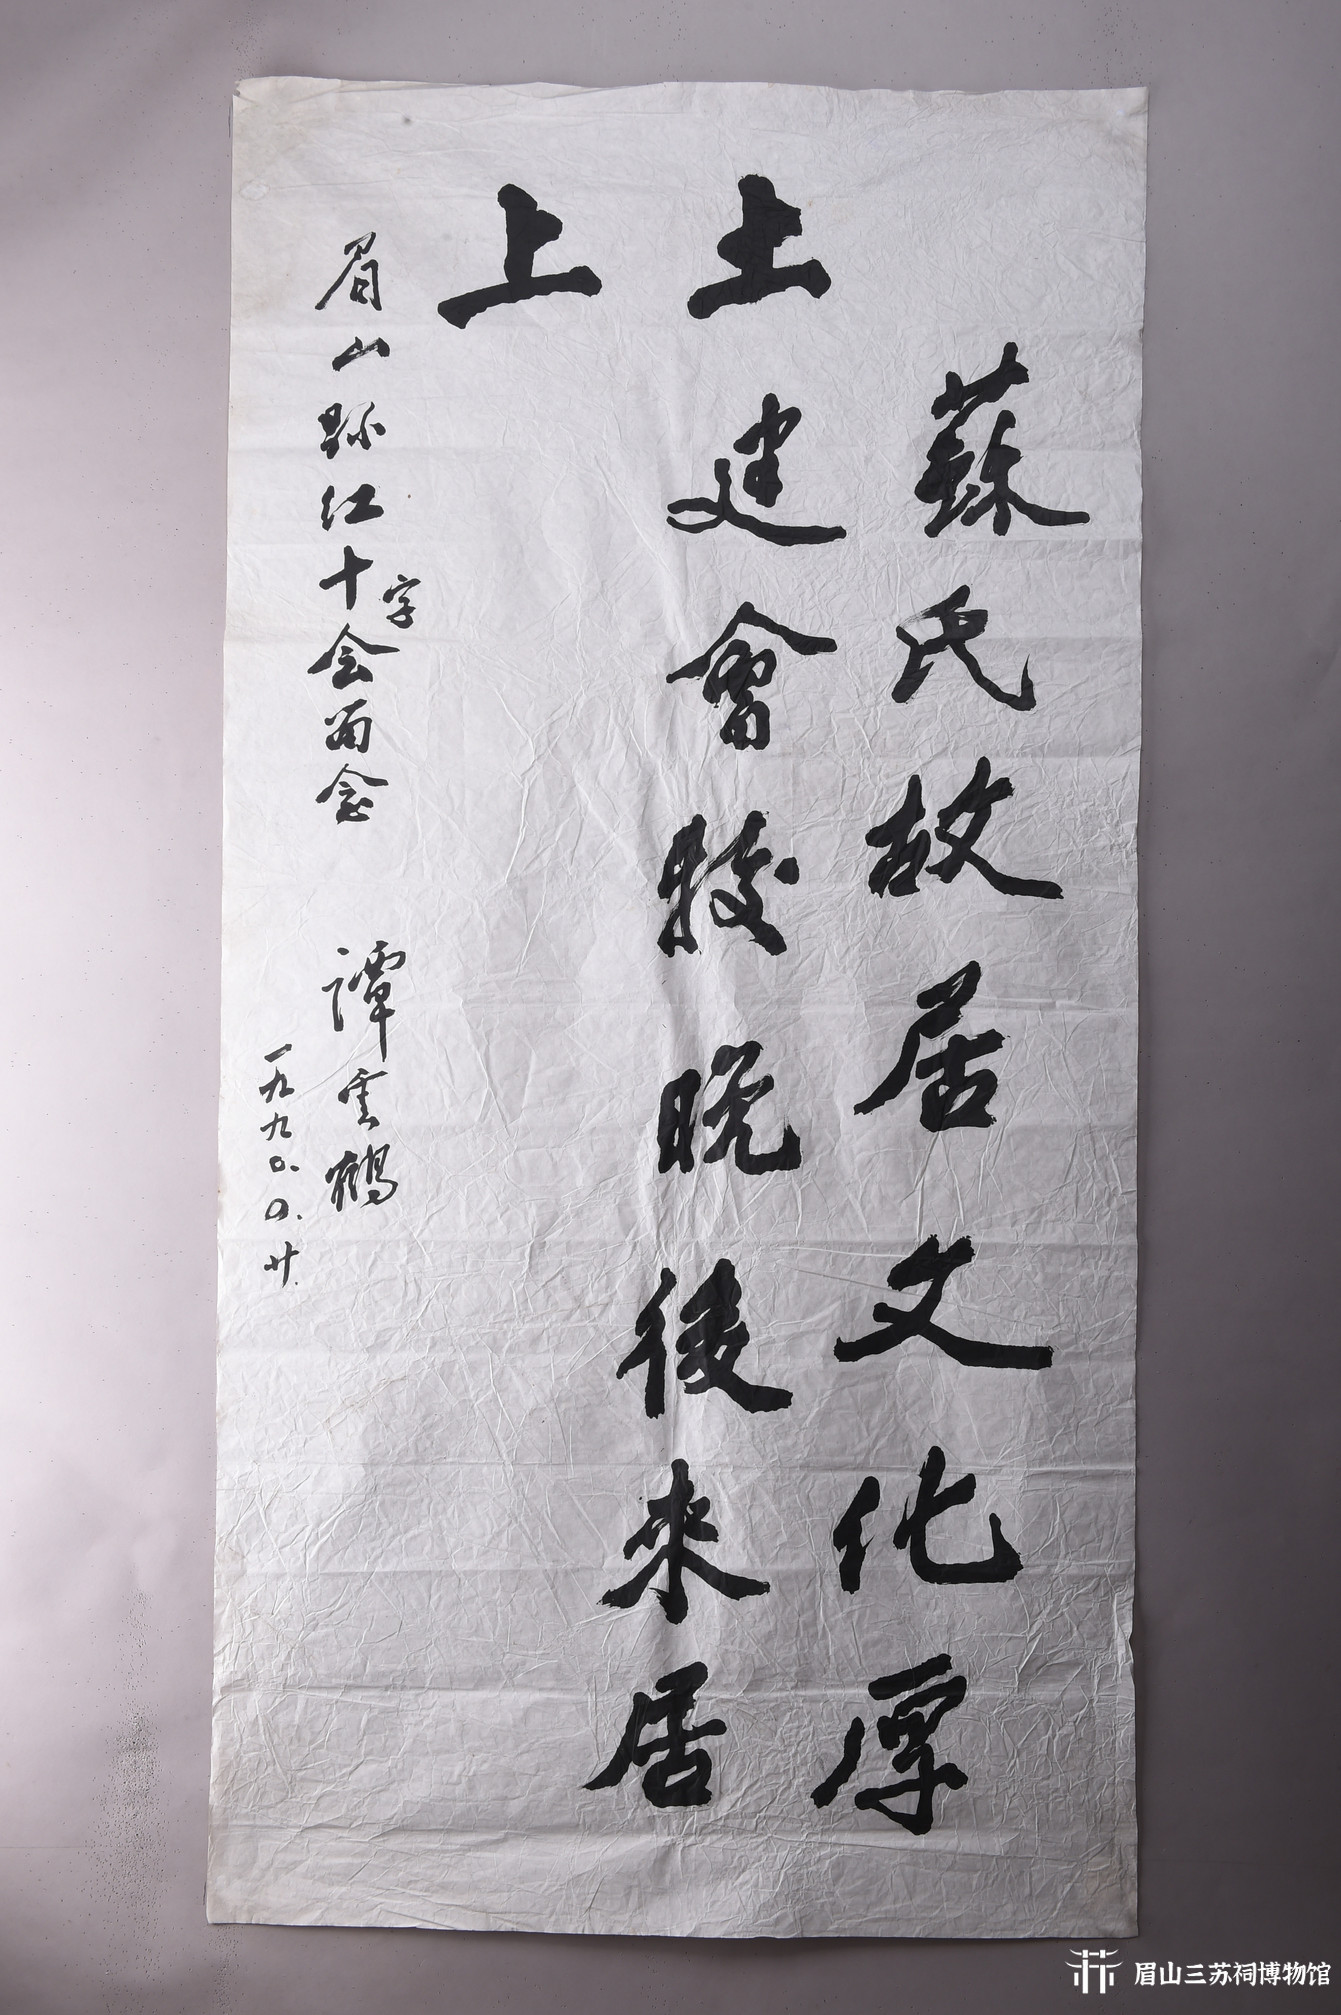 蘇氏故居文化厚
土建會較晚後來居
上
眉山縣红十字会留念
譚雲鶴
一九九〇.四.廿.
眉山三苏祠博物馆